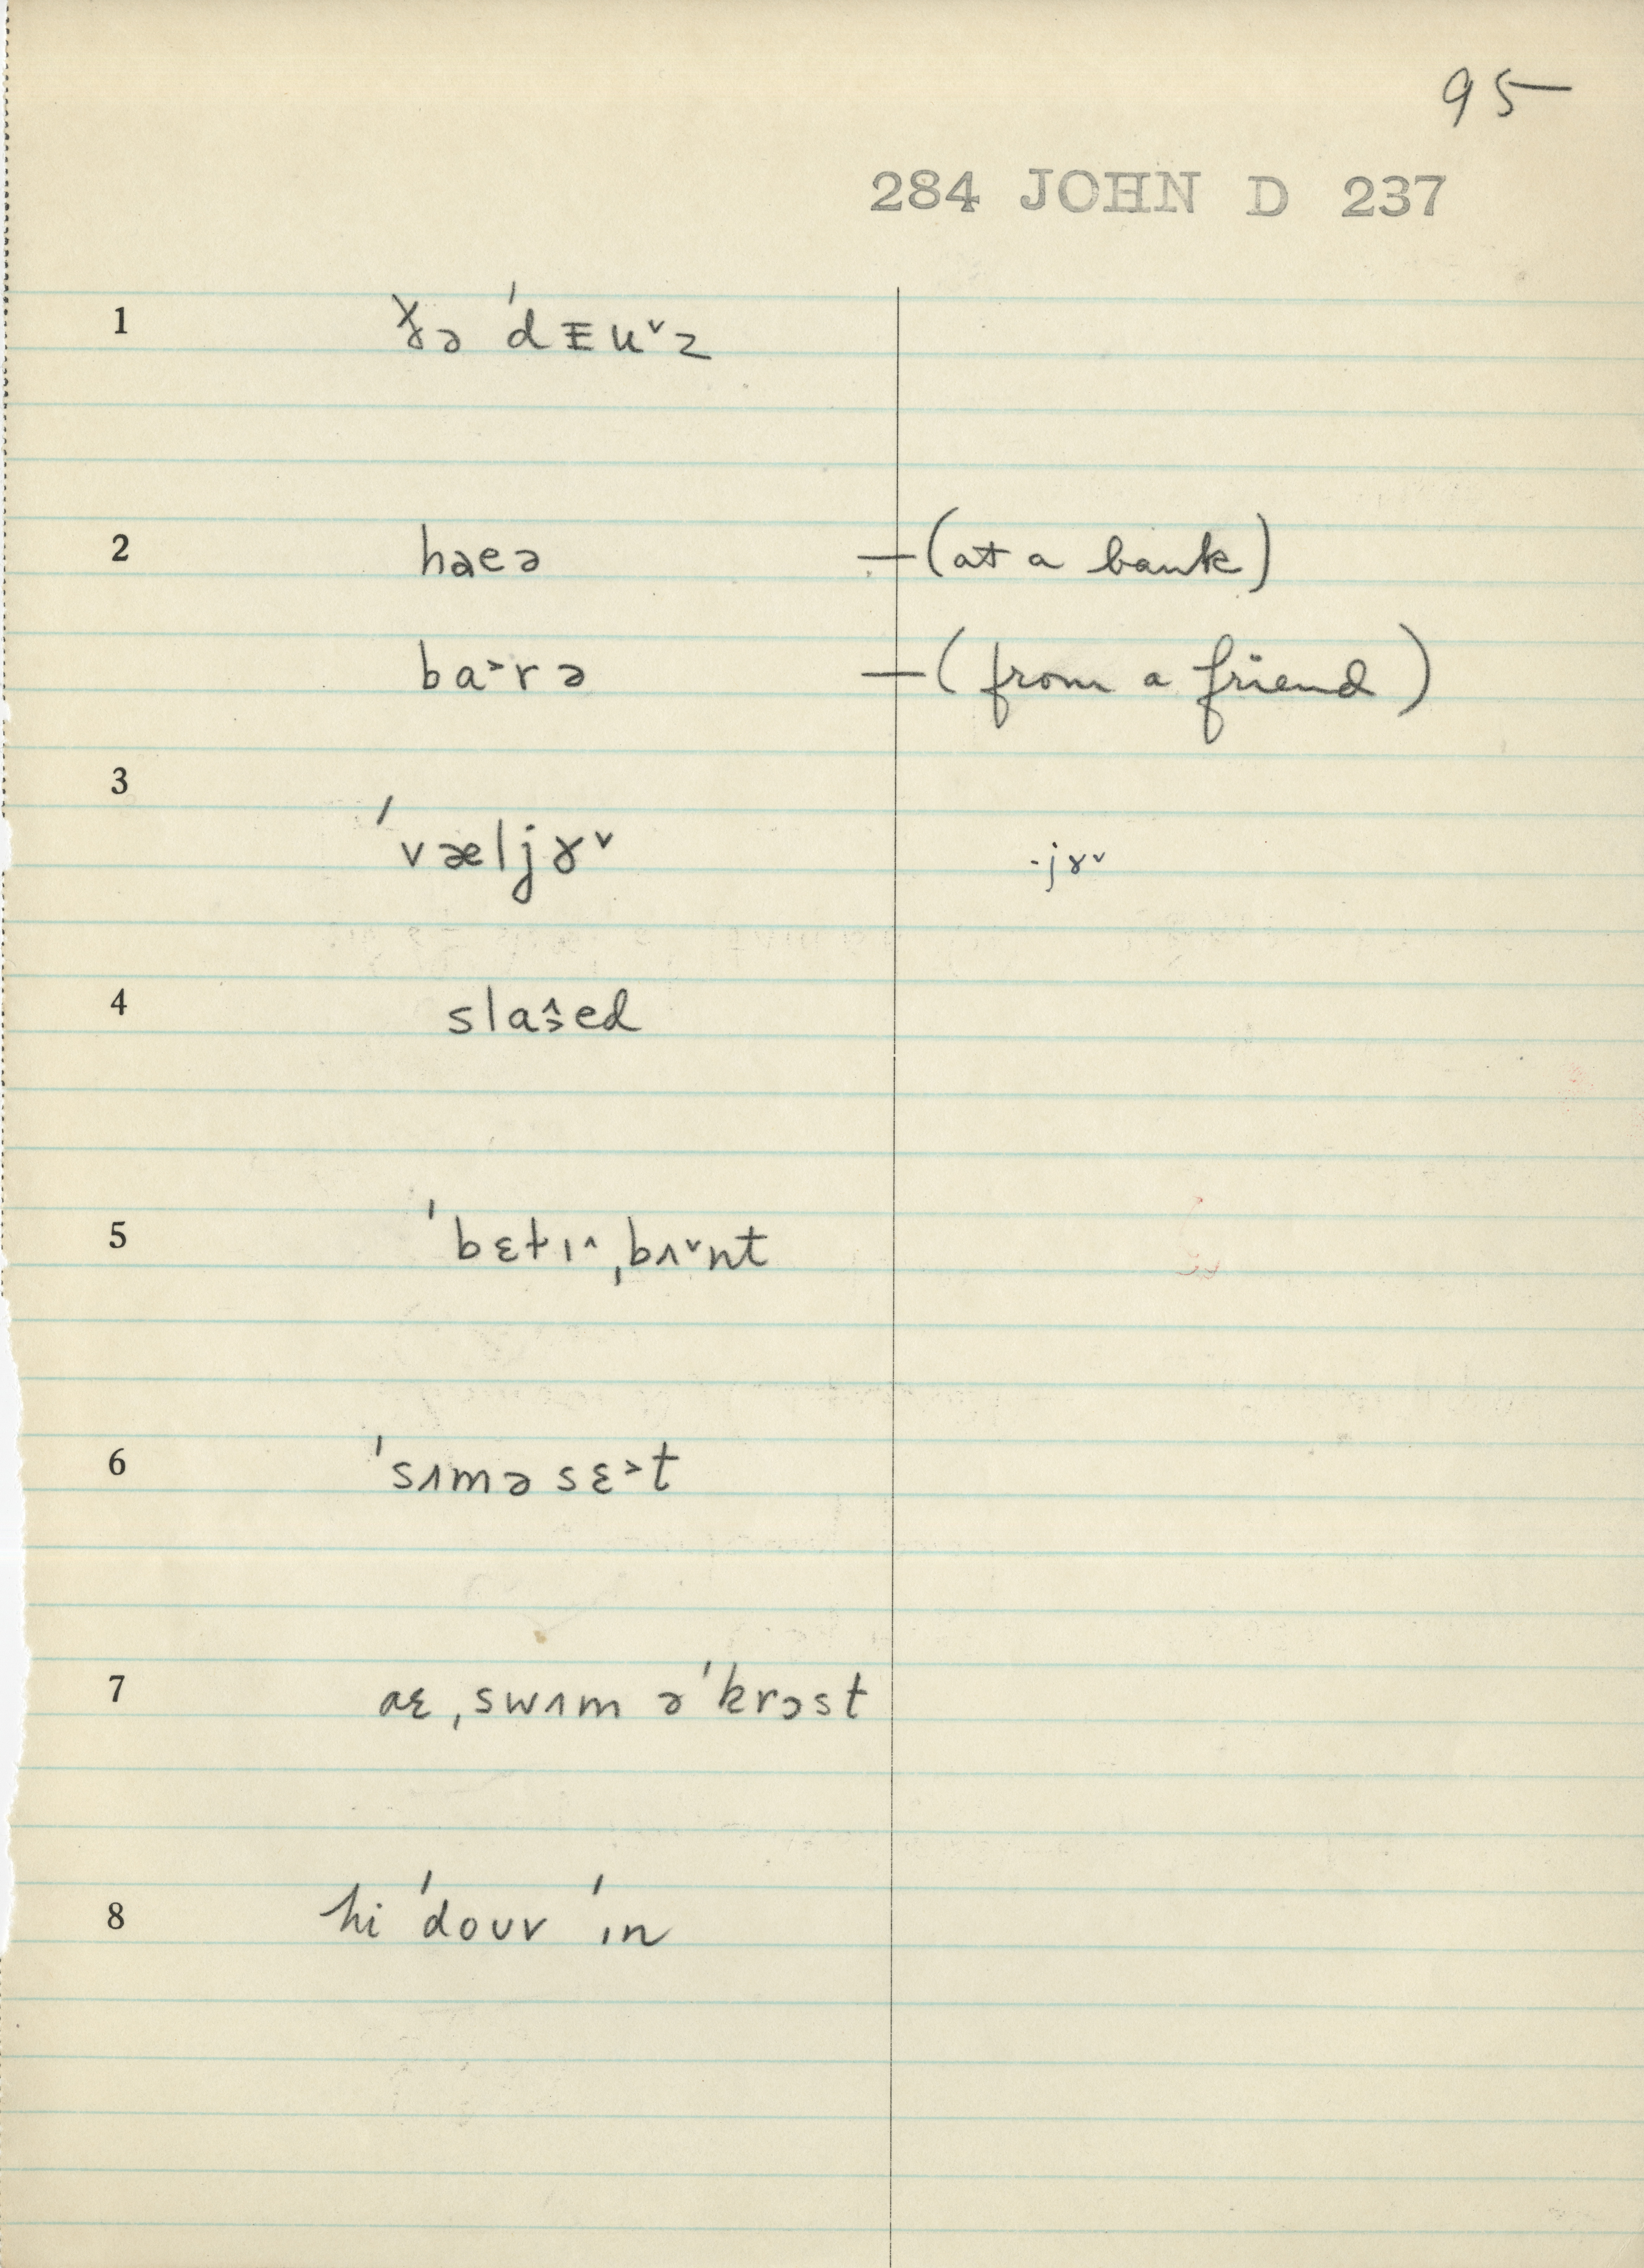 95
284 JOHN D 237
1 ðə ˈdᴲuˇz
2 haeə —(at a bank)
ba˃rə —(from a friend)
3 ˈvæljɤˇ -jɤˇ
4 slaʂ̂ed
5 ˈbɛtɪ˄ˌbʌˇnt
6 ˈsʌmə sɛ˃t
7 aɛ ˌswʌm əˈkrɔst
8 hi ˈdouv ˈɪn